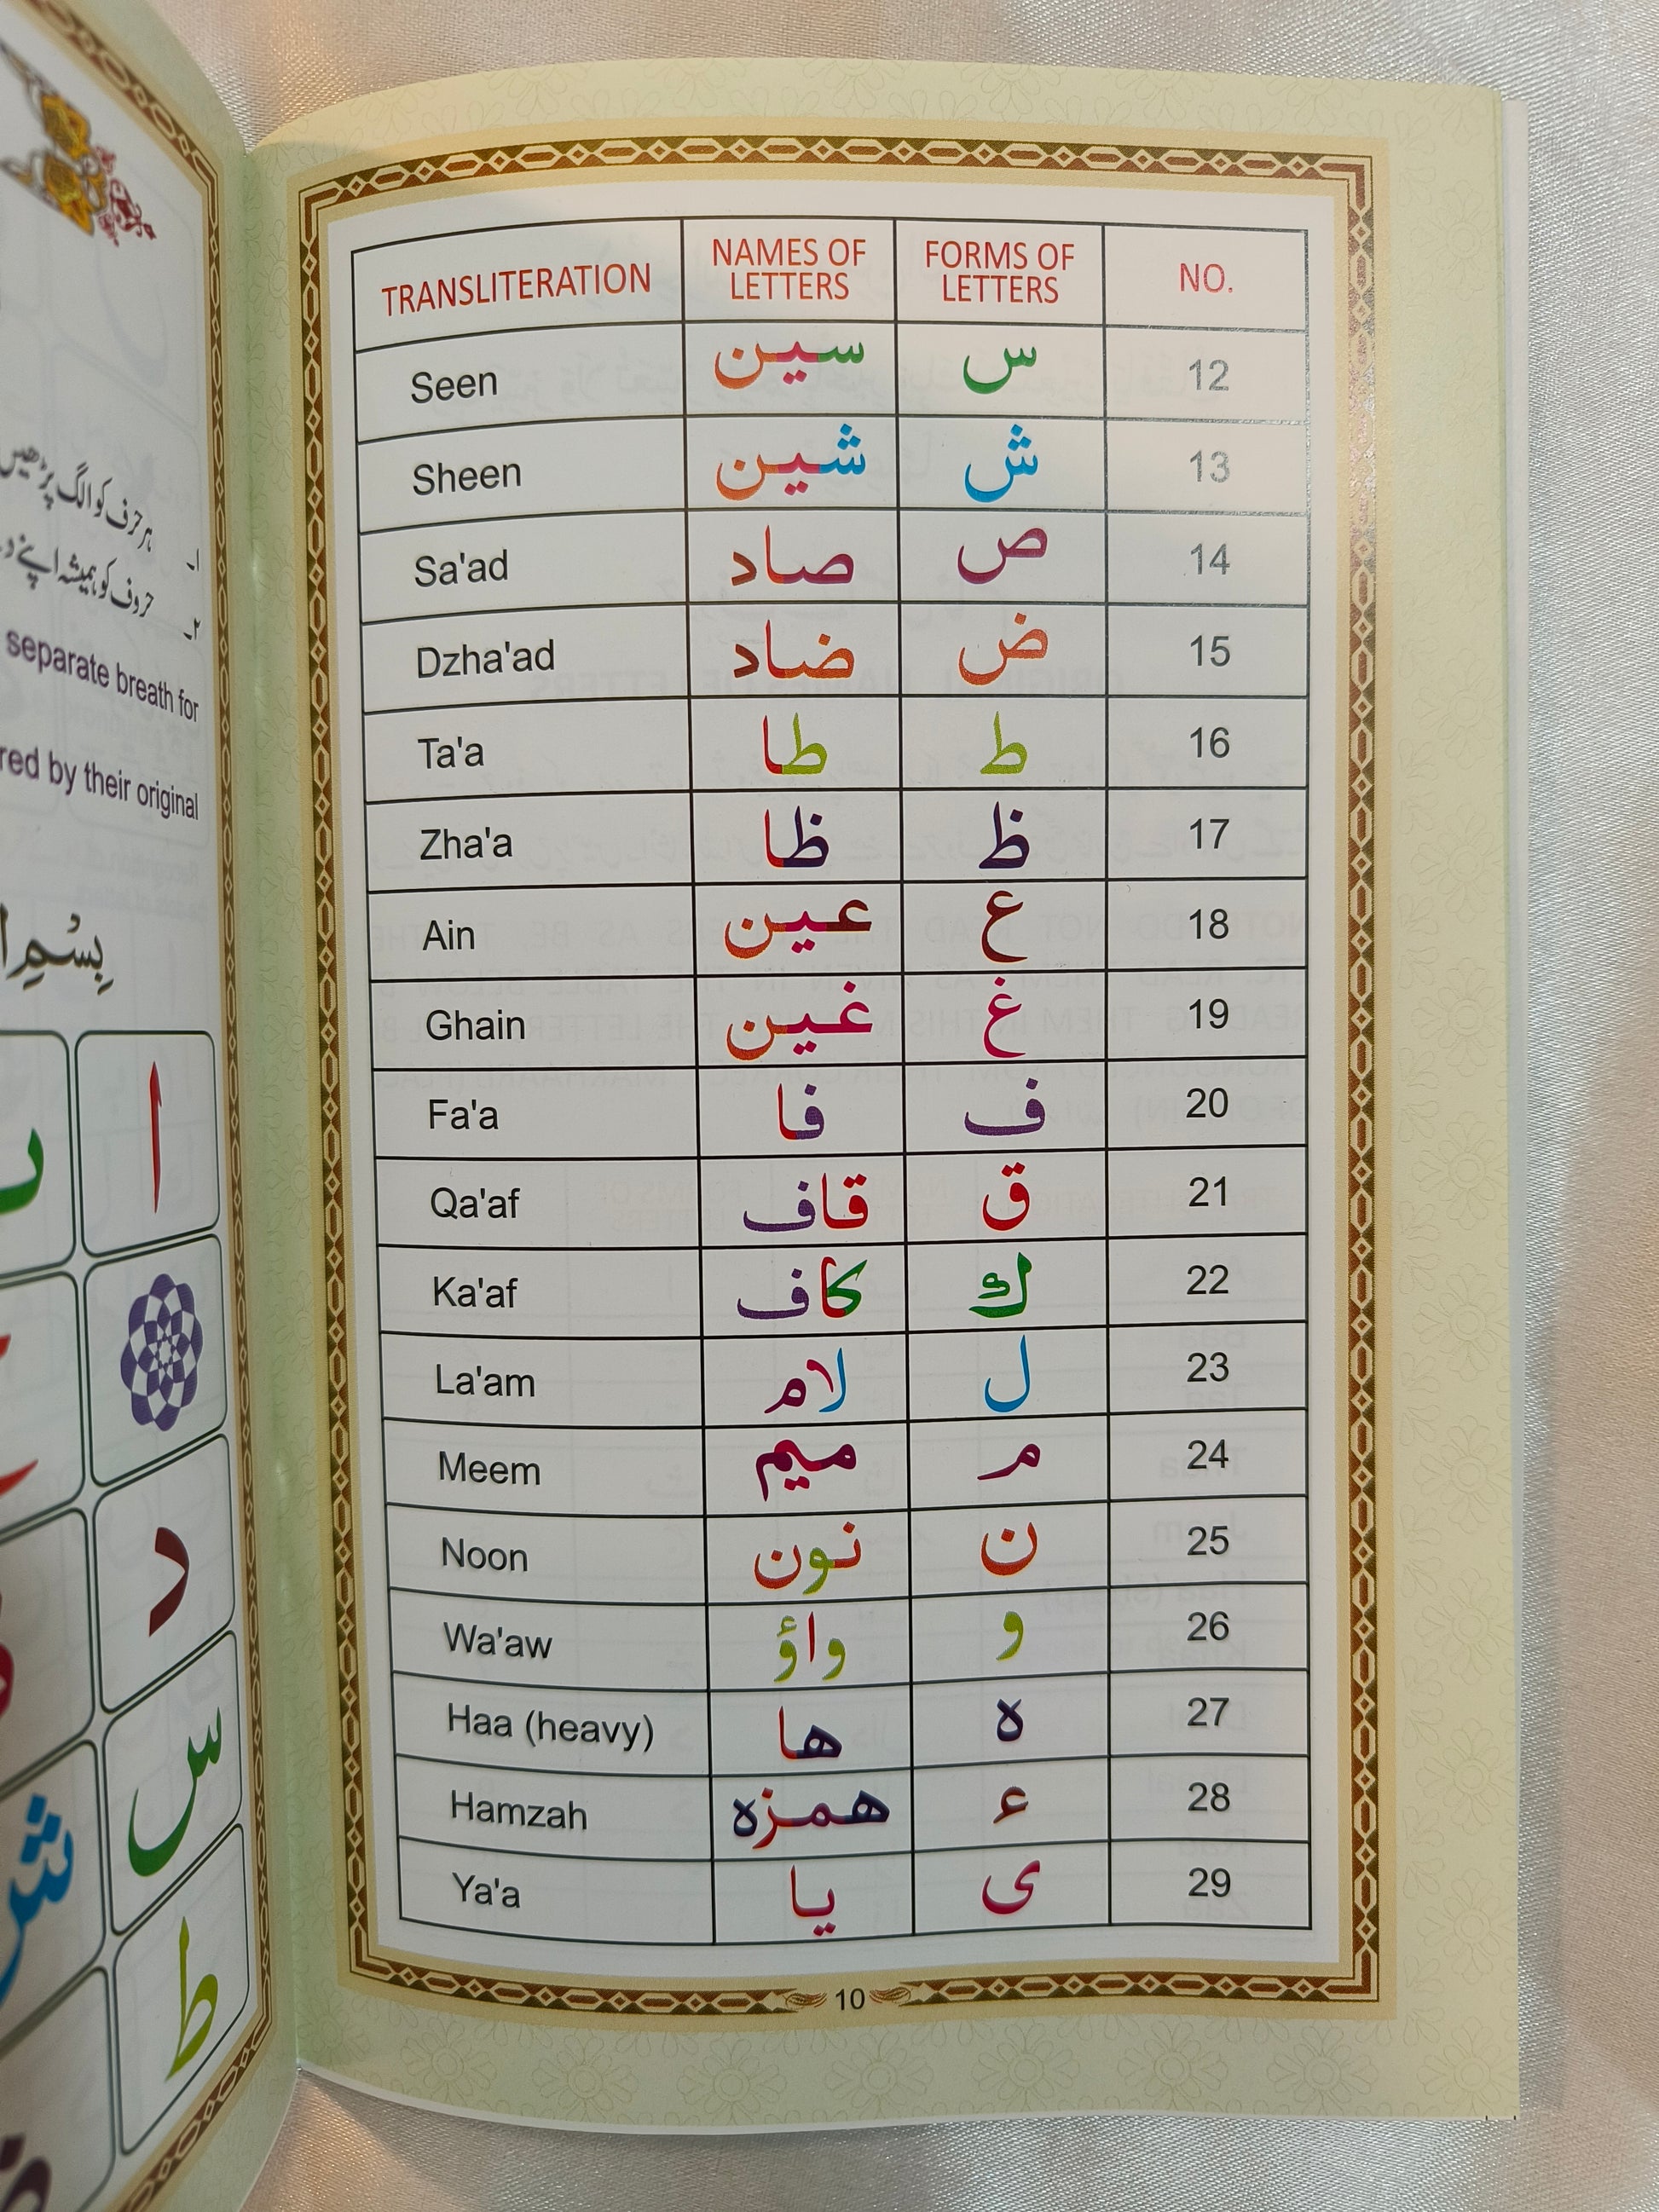 ہر حرف کو الگ
۱۔
حروف کو ہمیشہ اپنے
۲۔
separate breath for
red by their original
بِسْمِ
ا
د
س
ش
ط
TRANSLITERATION NAMES OF LETTERS FORMS OF LETTERS NO.
Seen سین س 12
Sheen شین ش 13
Sa'ad صاد ص 14
Dzha'ad ضاد ض 15
Ta'a طا ط 16
Zha'a ظا ظ 17
Ain عین ع 18
Ghain غین غ 19
Fa'a فا ف 20
Qa'af قاف ق 21
Ka'af کاف ك 22
La'am لام ل 23
Meem میم م 24
Noon نون ن 25
Wa'aw واؤ و 26
Haa (heavy) ھا ہ 27
Hamzah ھمزہ ء 28
Ya'a یا ی 29
10